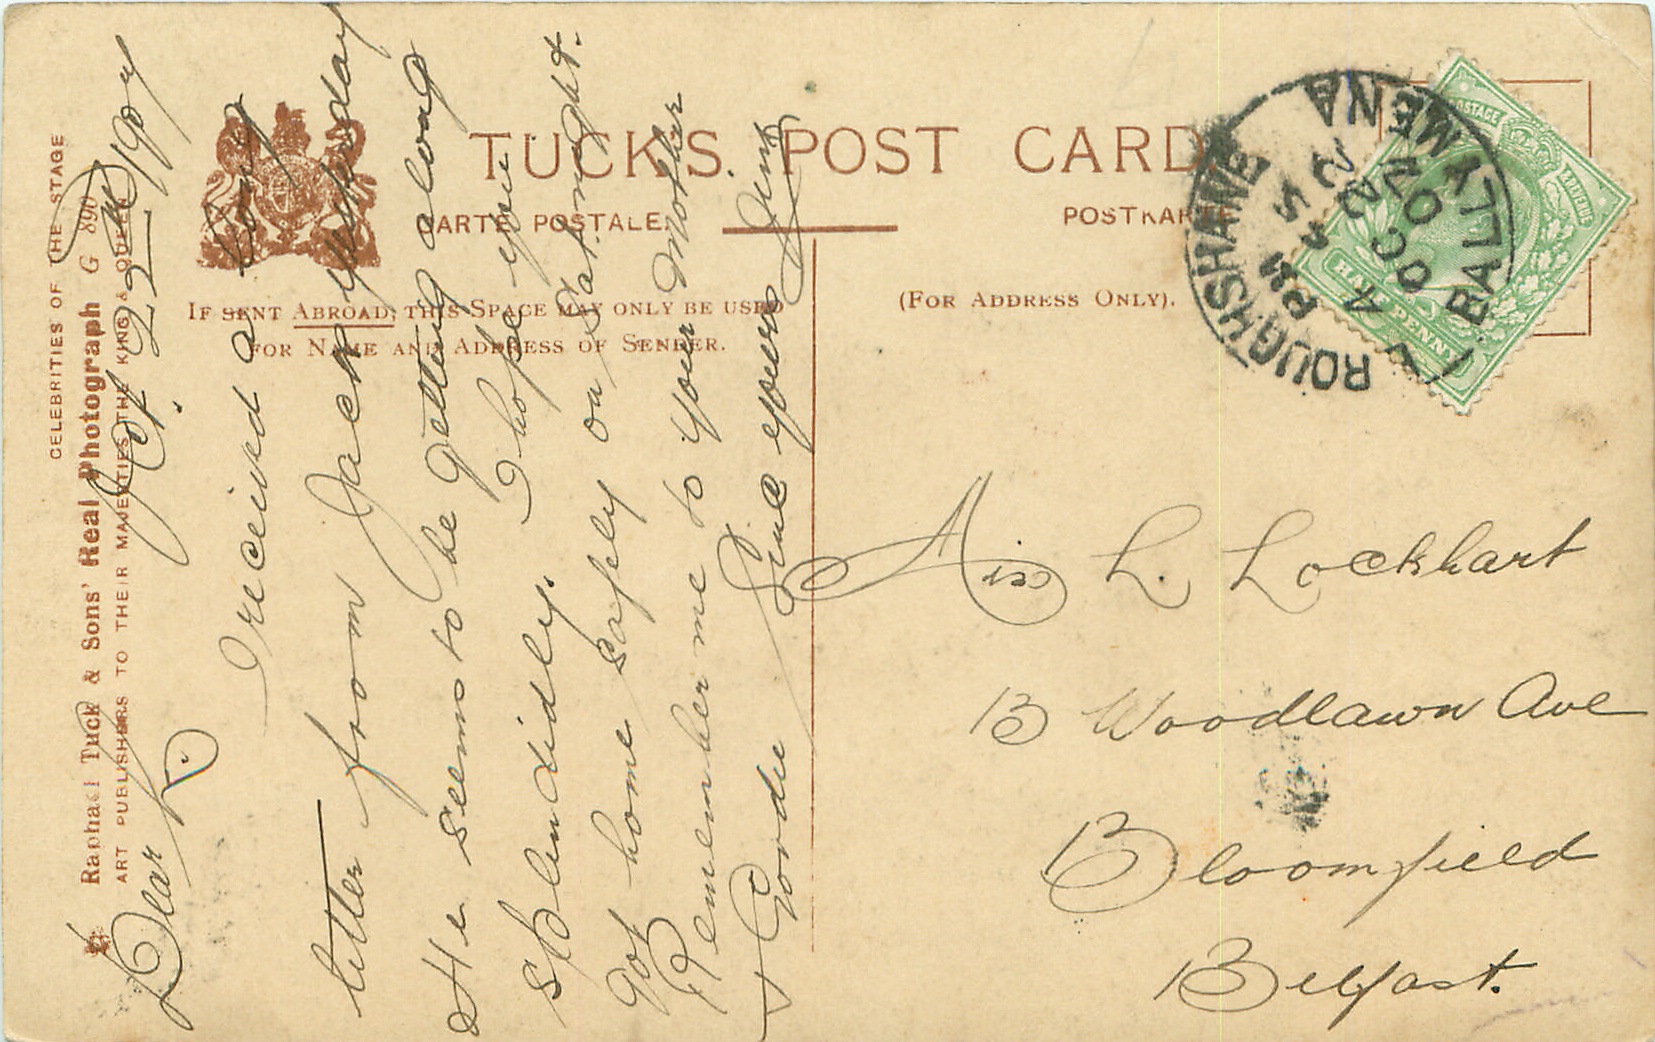 CELEBRITIES OF THE STAGE
Raphael Tuck & Sons' Real Photograph G 890
ART PUBLISHERS TO THEIR MAJESTIES THE KING & QUEEN
TUCK'S POST CARD
CARTE POSTALE.
POSTKARTE
IF SENT ABROAD, THIS SPACE MAY ONLY BE USED
FOR NAME AND ADDRESS OF SENDER.
(FOR ADDRESS ONLY).
POSTAGE
REVENUE
HALFPENNY
ROUGHSHANE
BALLYMENA
4.45 PM
OC 22
07
Oct. 22nd 1907
Dear L
I received a long
letter from Jack yesterday
He seems to be getting along
splendidly. I hope you
got home safely on Sat. night.
Remember me to your Mother
Since yours
Miss L. Lockhart
13 Woodlawn Ave
Bloomfield
Belfast.